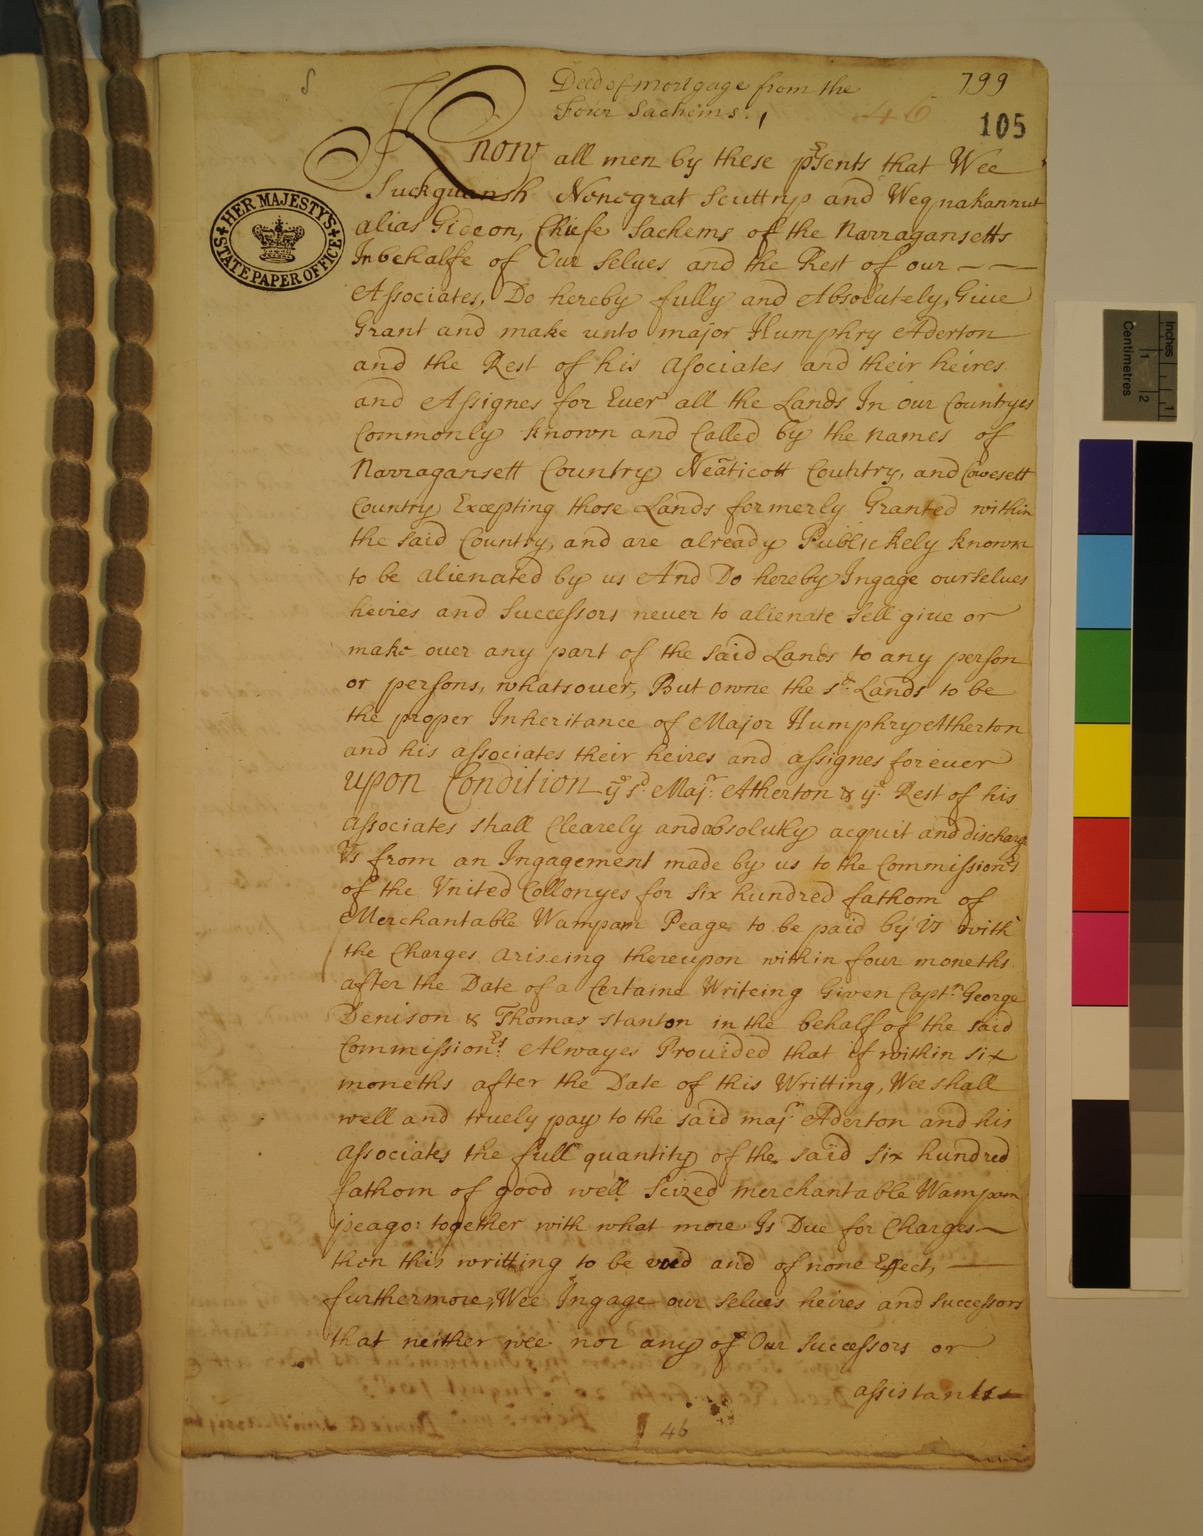 Deed of mortgage from the
Four Sachems.
799
46
105
Know all men by these prsents that Wee
Suckquansh Nonograt Scuttup and Weqnakannut
alias Gideon, Chiefe Sachems of the Narragansetts
In behalfe of Our selues and the Rest of our
Associates, Do hereby fully and Absolutely, Giue
Grant and make unto major Humphry Aderton
and the Rest of his Asociates and their heires
and Assignes for Euer all the Lands In our Countryes
Commonly known and Called by the names of
Narragansett Country Neaticott Country, and Cowesett
Country Excepting those Lands formerly Granted within
the said Country, and are already Publickely known
to be alienated by us And Do hereby Ingage ourselues
heires and Successors neuer to alienate sell giue or
make ouer any part of the said Lands to any person
or persons, whatsouer, But owne the sd. Lands to be
the proper Inheritance of Major Humphry Atherton
and his associates their heires and assignes foreuer
upon Condition ye sd Majr. Atherton & ye. Rest of his
associates shall Clearely and absolutly acquit and discharg
Vs from an Ingagement made by us to the Commissionrs
of the Vnited Collonyes for six hundred fathom of
Merchantable Wampam Peage to be paid by Vs with
the Charges ariseing thereupon within four moneths
after the Date of a Certaine Writeing Given Captn. George
Denison & Thomas Stanton in the behalf of the said
Commissionrs. Alwayes Prouided that if within six
moneths after the Date of this Writting, Wee shall
well and truely pay to the said majr. Aderton and his
associates the full quantity of the said six hundred
fathom of good well seized merchantable Wampam
peago: together with what more Is Due for Charges
then this writting to be void and of none Effect,
furthermore, Wee Ingage our selues heires and successors
that neither wee nor any of Our Successors or
assistants
46
HER MAJESTY'S
STATE PAPER OFFICE
Inches
Centimetres
1
2
1